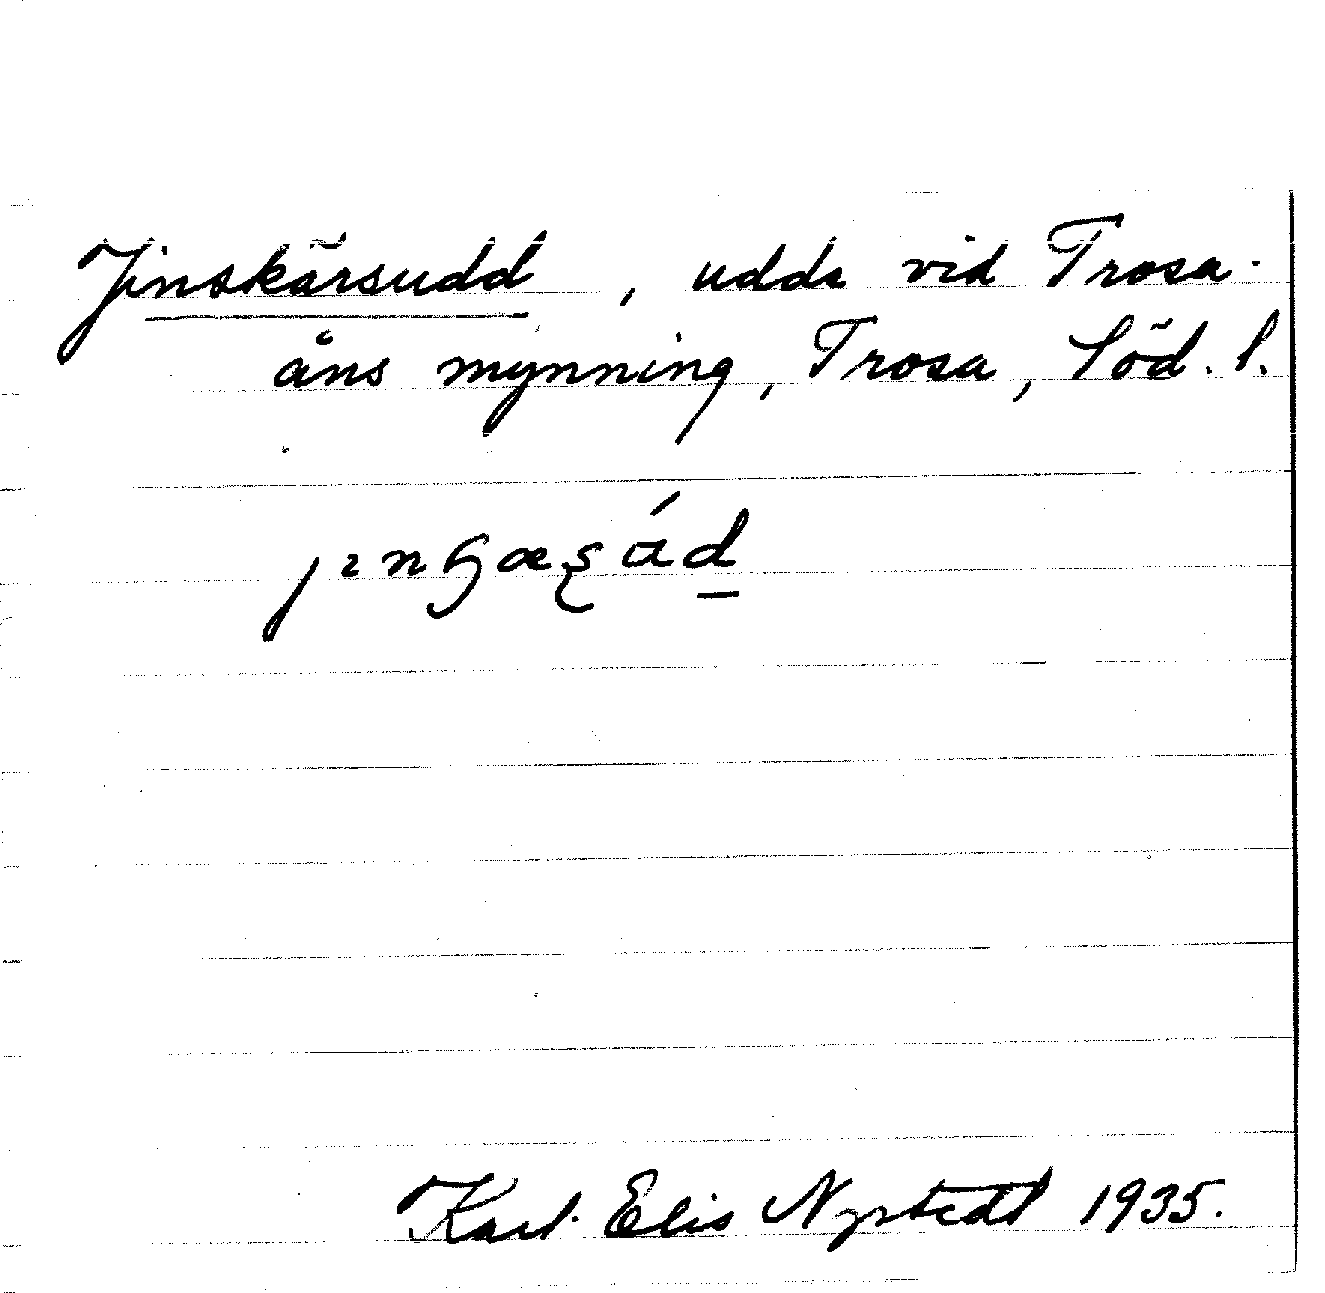 Jinskärsudd, udde vid Trosa-
åns mynning, Trosa, Söd. l.
Karl-Elis Nystedt 1935.